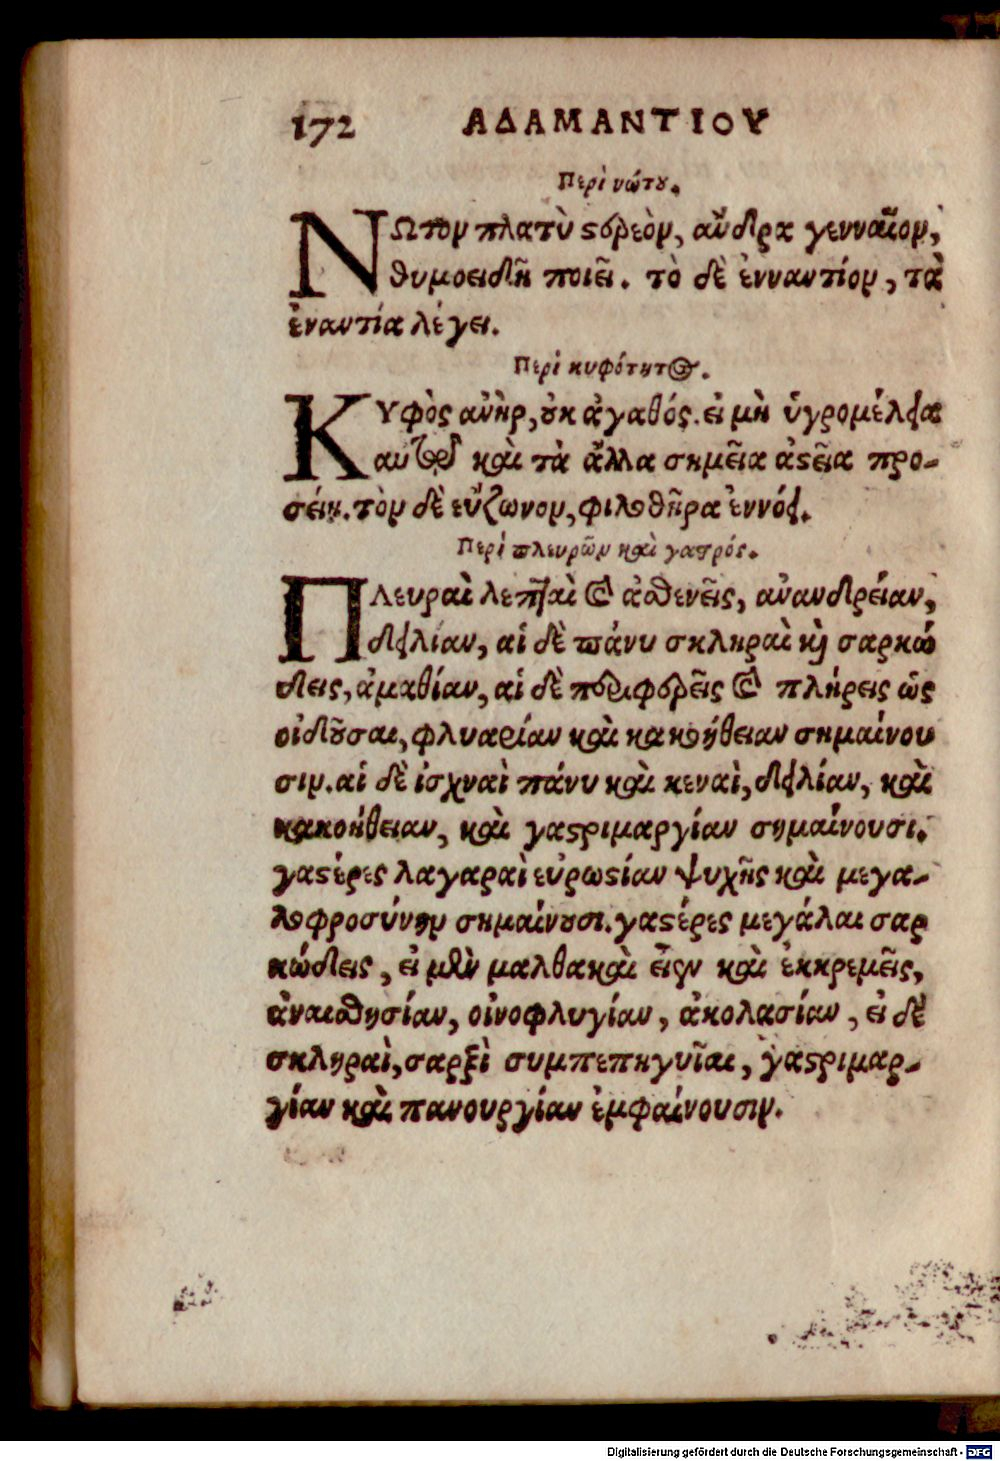 172 ΑΔΑΜΑΝΤΙΟΥ
Περὶ νώτου.
ΝΩτον πλατὺ στερεὸν, ἄνδρα γενναῖον,
θυμοειδῆ ποιεῖ. τὸ δὲ ἐνναντίον, τὰ
ἐναντία λέγει.
Περὶ κυφότητος.
ΚΥφὸς ἀνὴρ, οὐκ ἀγαθός. εἰ μὴ ὑγρομέλεια
αυ καὶ τὰ ἄλλα σημεῖα ἀστεῖα προ-
σείη. τὸν δὲ εὔζωνον, φιλοθῆρα ἐννόει.
Περὶ πλευρῶν καὶ γαστρός.
ΠΛευραὶ λεπταὶ καὶ ἀσθενεῖς, ἀνανδρείαν,
δειλίαν, αἱ δὲ πάνυ σκληραὶ καὶ σαρκώ
δεις, ἀμαθίαν, αἱ δὲ περιφερεῖς καὶ πλήρεις ὡς
οἰδοῦσαι, φλυαρίαν καὶ κακοήθειαν σημαίνου
σιν. αἱ δὲ ἰσχναὶ πάνυ καὶ κεναὶ, δειλίαν, καὶ
κακοήθειαν, καὶ γαστριμαργίαν σημαίνουσι.
γαστέρες λαγαραὶ εὐρωστίαν ψυχῆς καὶ μεγα-
λοφροσύνην σημαίνουσι. γαστέρες μεγάλαι σαρ
κώδεις, εἰ μὲν μαλθακαὶ εἶεν καὶ ἐκκρεμεῖς,
ἀναισθησίαν, οἰνοφλυγίαν, ἀκολασίαν, εἰ δὲ
σκληραὶ, σαρξὶ συμπεπηγυῖαι, γαστριμαρ-
γίαν καὶ πανουργίαν ἐμφαίνουσιν.
Digitalisierung gefördert durch die Deutsche Forschungsgemeinschaft - DFG